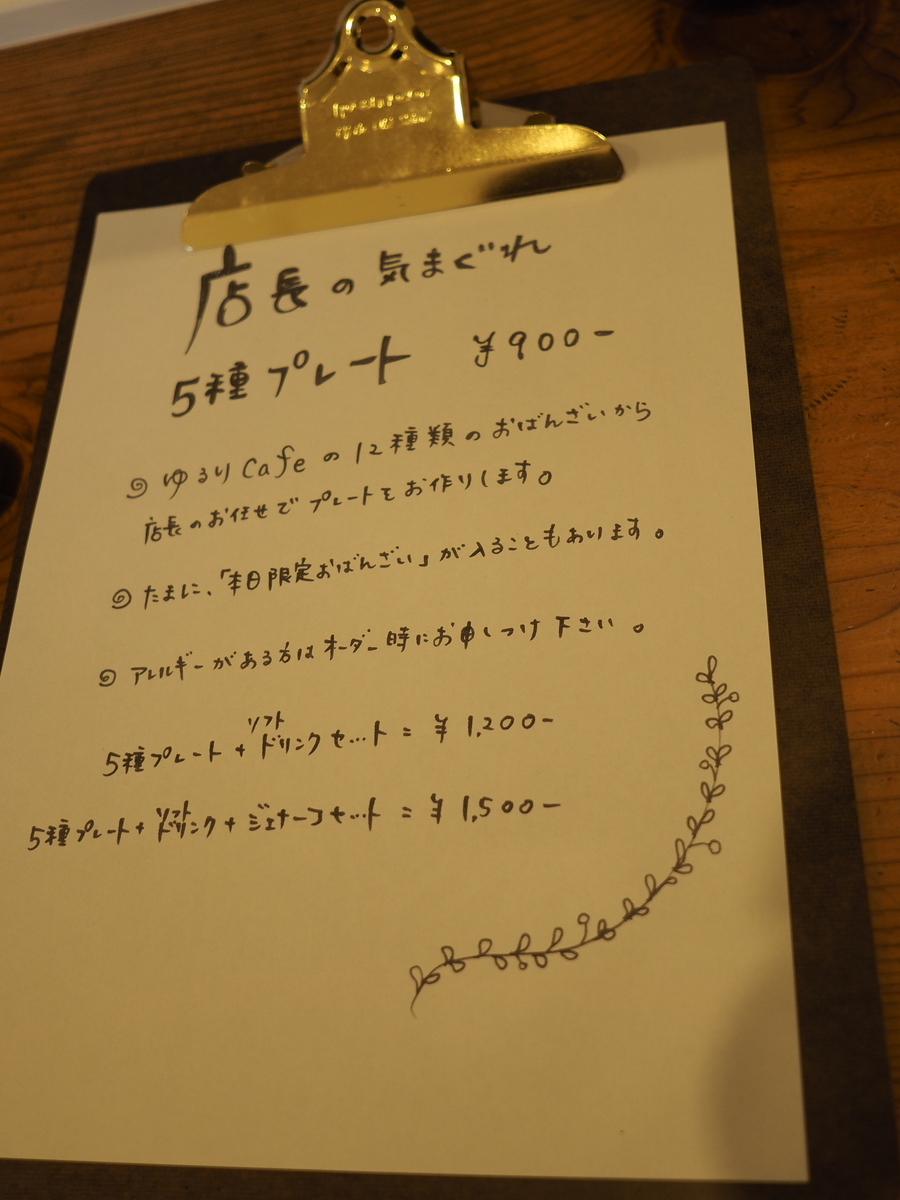 店長の気まぐれ
5種プレート ¥900-
ゆるりCafeの12種類のおばんざいから
店長のお任せでプレートをお作りします。
たまに、「本日限定おばんざい」が入ることもあります。
アレルギーがある方はオーダー時にお申しつけ下さい。
ソフト
5種プレート+ドリンクセット=¥1,200-
ソフト
5種プレート+ドリンク+ジェラートセット=¥1,500-